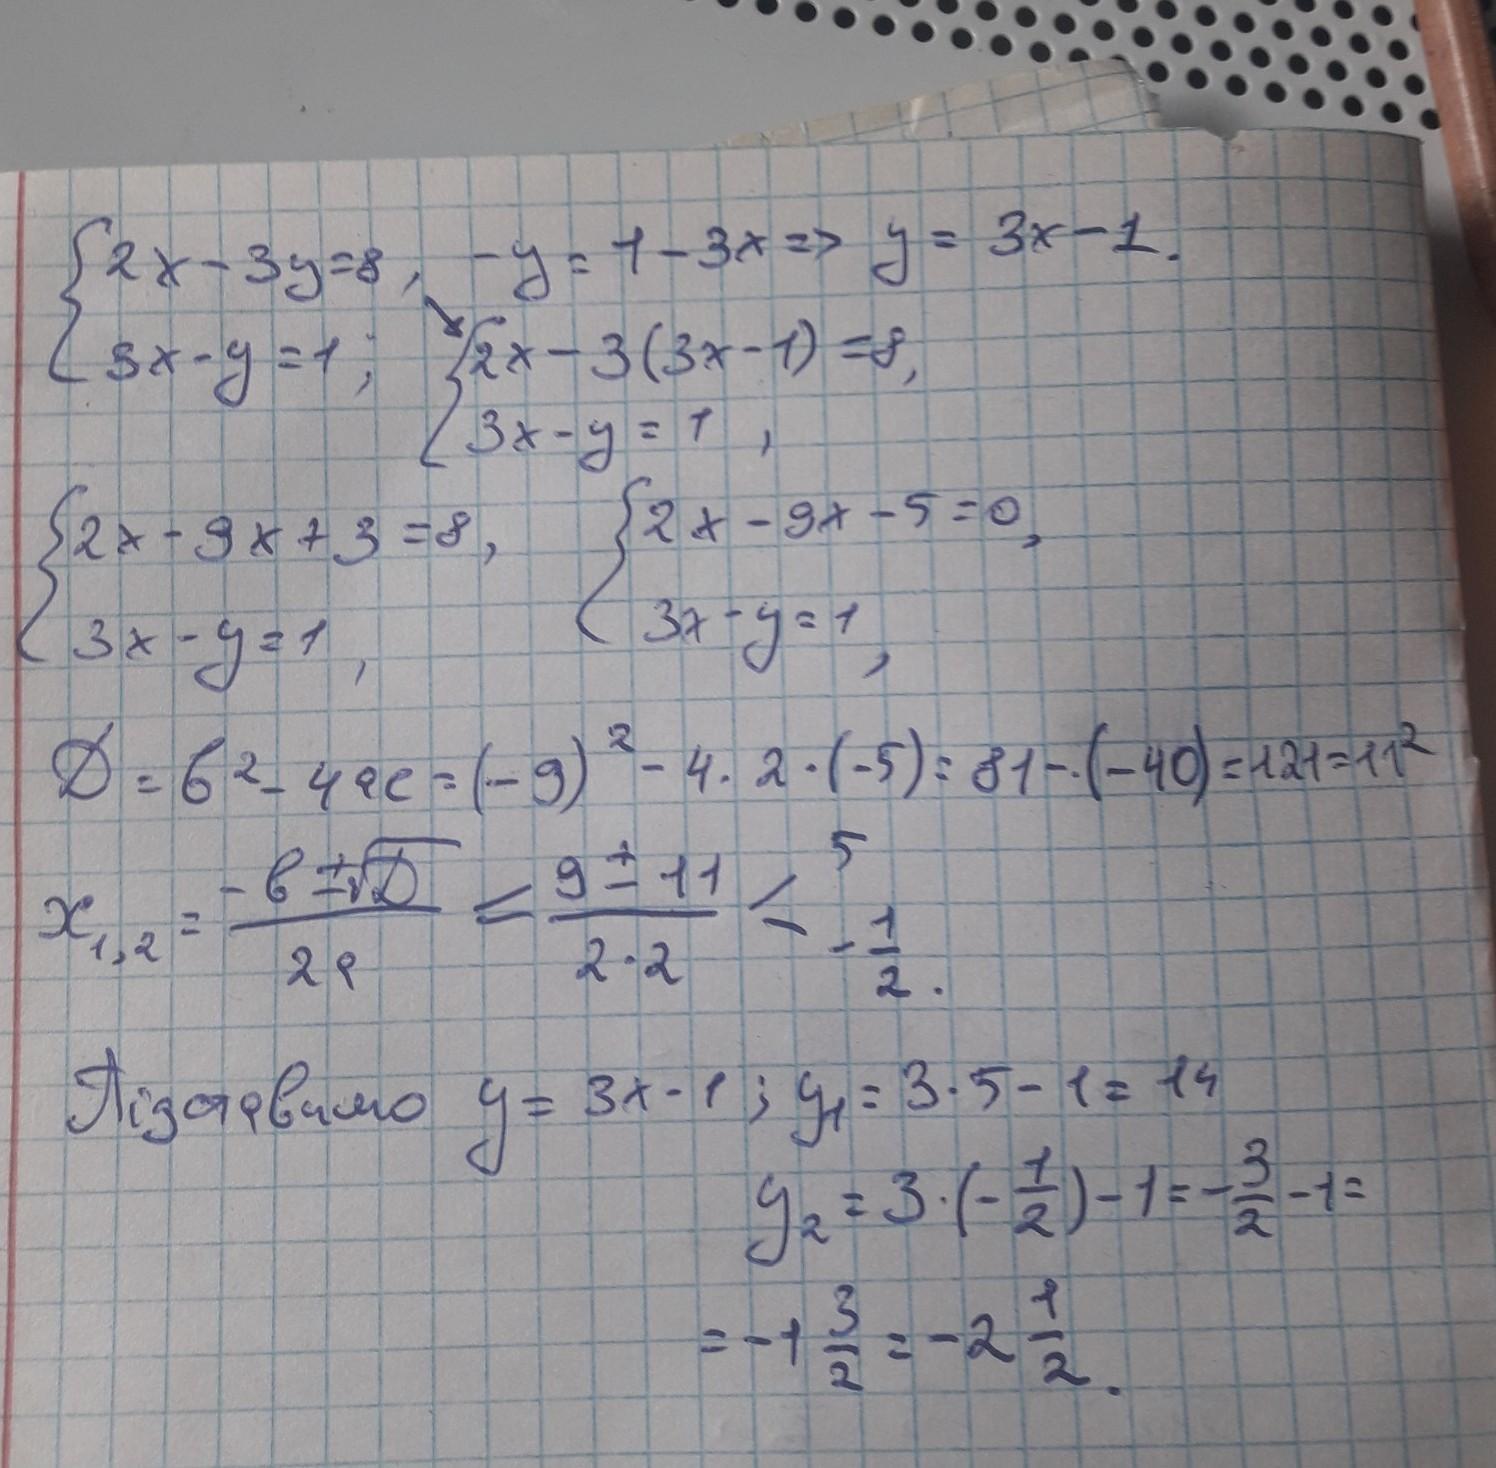 {2x - 3y = 8, -y = 1 - 3x => y = 3x - 1.
3x - y = 1; {2x - 3(3x - 1) = 8,
3x - y = 1,
{2x - 9x + 3 = 8, {2x - 9x - 5 = 0,
3x - y = 1, 3x - y = 1,
D = b² - 4ac = (-9)² - 4 · 2 · (-5) = 81 - (-40) = 121 = 11²
x₁,₂ = (-b ± √D)/(2a) = (9 ± 11)/(2·2) < 5
-1/2.
Підставимо y = 3x - 1; y₁ = 3 · 5 - 1 = 14
y₂ = 3 · (-1/2) - 1 = -3/2 - 1 =
= -1 3/2 = -2 1/2.